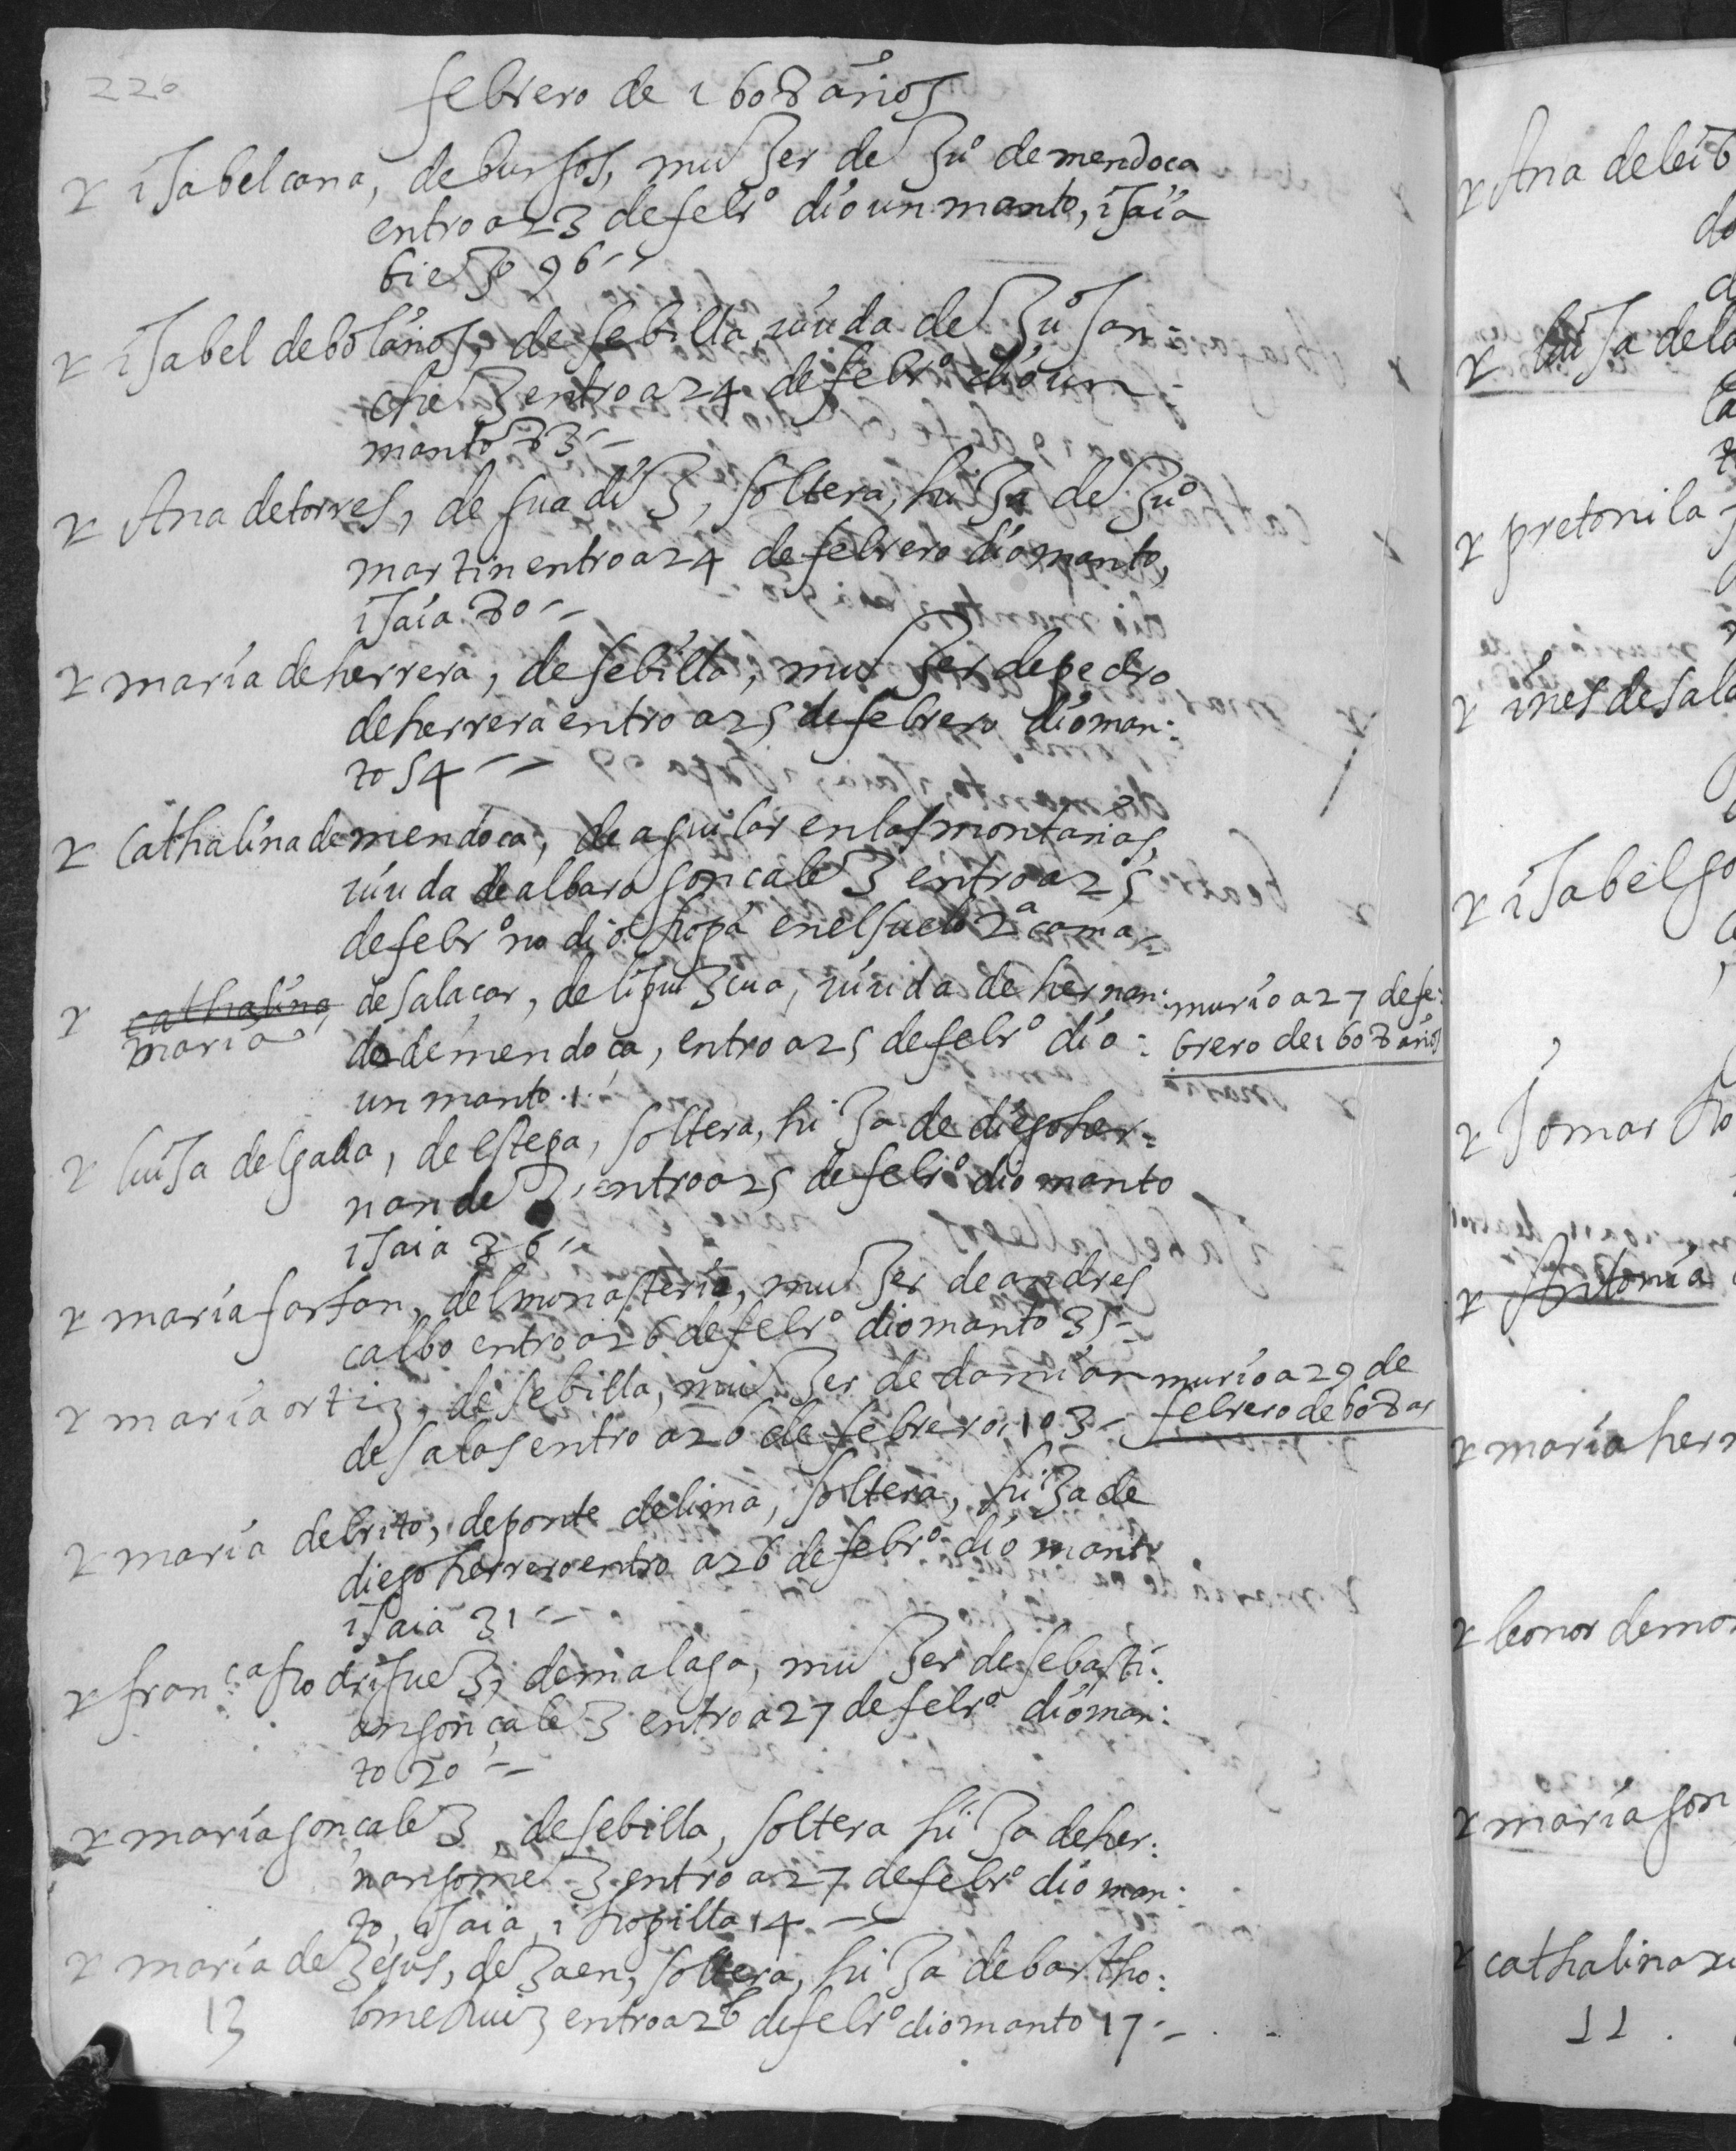 220
febrero de 1608 años
r isabel cana, de burgos, muger de Juº de mendoca
entro a 23 de febrº dio un manto, isaia
bieJo 96
r isabel de bolaños, de sebilla, uiuda de Ju san=
cheZ entro a 24 de febrº dio un
manto 83
r Ana de torres, de guadiZ, soltera, hiJa de Juº
martin entro a 24 de febrero dio manto,
isaia 80
r maria de herrera, de sebilla, muJer de pedro
de herrera entro a 25 de febrero dio man:
to 54
r Cathalina de mendoca, de aguilar en las montañas,
uiuda de albaro goncaleZ entro a 25
de febrº no dio hopa en el suelo 2ª cama
r cathalina de salaçar, de lipuZcua, uiuda de hernan: murio a 27 de fe:
maria do de mendoça, entro a 25 de febrº dio: brero de 1608 años
un manto 1
r luisa delgada, de estepa, soltera, hiJa de diego her=
nandeZ, entro a 25 de febrº dio manto
isaia 36
r maria farfan, del monasterio, muJer de andres
calbo entro a 26 de febrº dio manto 35
r maria ortiz, de sebilla, muJer de damian murio a 29 de
de salas entro a 26 de febrero, 103 febrero de 608 as
r maria de brito, de ponte de lima, soltera, hiJa de
diego herrero entro a 26 de febrº dio manto
isaia 31
r franca rodrigueZ, de malaga, muJer de sebasti:
an gonçaleZ entro a 27 de febrº dio man:
to 20
r maria goncaleZ, de sebilla, soltera hiJa de her:
nan gomeZ entro a 27 de febrº dio man:
to, isaia, i hopilla 14
r maria de Jesus, de Jaen, soltera, hiJa de bartho:
lome ruiz entro a 26 de febrº dio manto 17
13
r Ana de leib
do
r luisa de la
r pretonila
r ines de sala
r isabel go
r Jomar
r Antonia
r maria hern
r leonor de mo
r maria gon
r cathalina
11